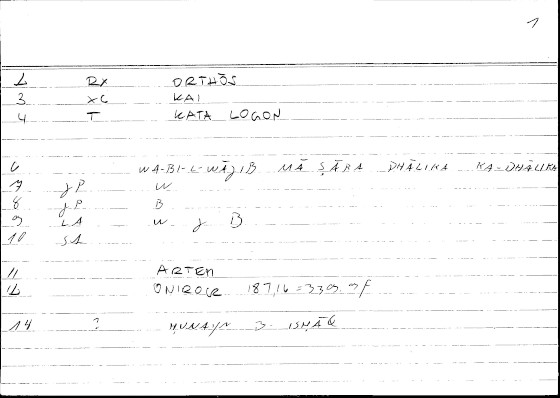 1
2 RX ORTHŌS
3 XC KAI
4 T KATA LOGON
6 WA-BI-L-WĀJIB MĀ ṢĀRA DHĀLIKA KA-DHĀLIKA
7 JP W
8 JP B
9 LA W J B
10 SA
11 ARTEM
12 ONIROCR 187,16 = 339,9f
14 ? ḤUNAYN B ISḤĀQ